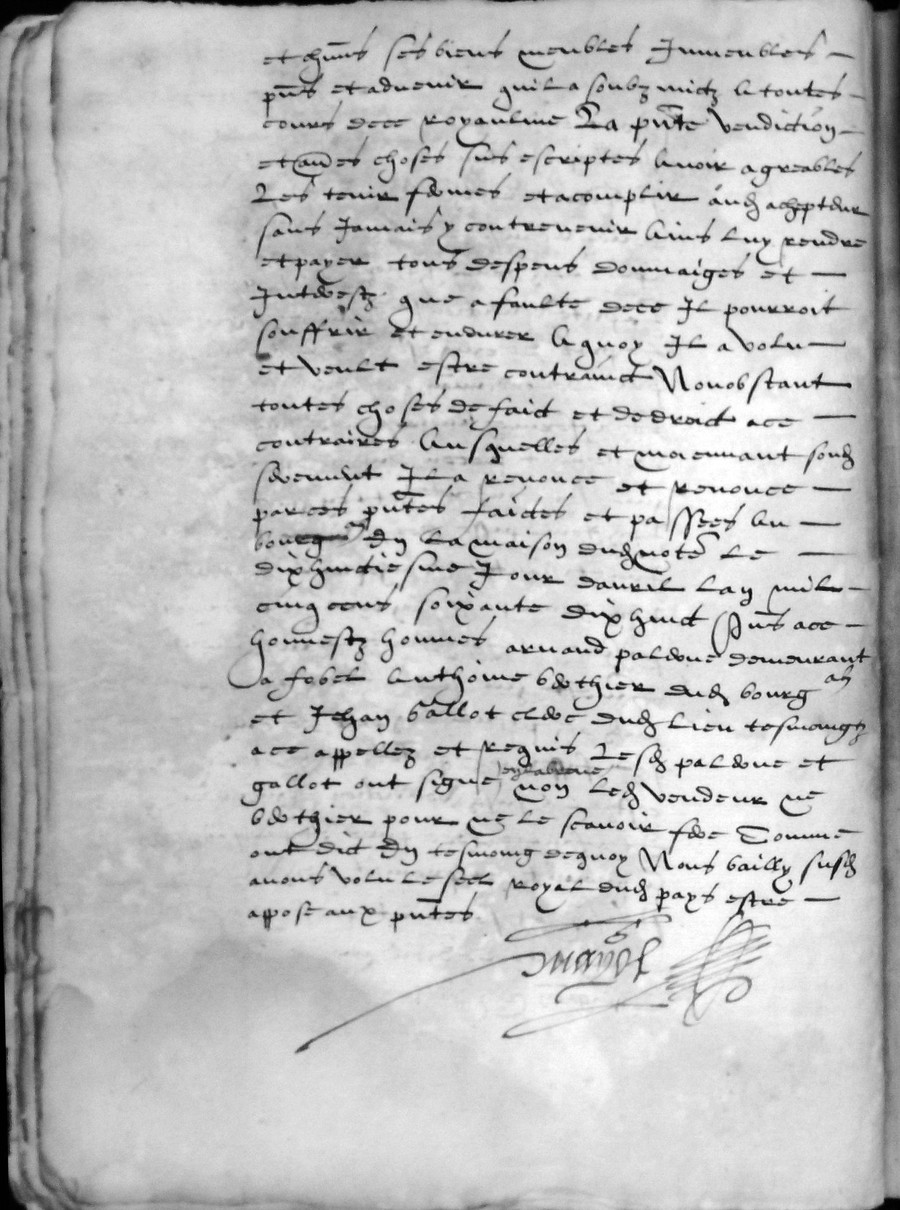 et chuns ses biens meubles Inmeubles
pns et advenir quil a soubzmictz a toutes
cours dece royaulme La pnte vendiction
et aues choses sus escriptes avoir agreables
Les tenir fermes et acomplir aud achepteur
sans Jamais y contrevenir ains luy rendre
et payer tous despens dommaiges et
Interestz que a faulte dece Il pourroit
souffrir et endurer a quoy Il a volu
et veult estre contrainct Nonobstant
toutes choses de faict et de droict ace
contraires Ausquelles et moiennant sond
serement Il a renonce et renonce
par ces pntes faictes et passees au
bourg En la maison dud note Le
dixhuictiesme Jour dauril lan mil
cinq cens soixante dixhuict Pns ace
honnestz hommes arnaud paldoue demeurant
a fobet Anthoine berthier dud bourg
et Jehan gallot clerc dud lieu tesmoingz
ace appellez et requis Lesd paldoue et
gallot ont signe non led vendeur ne
berthier pour ne le scavoir fere Comme
ont dict En tesmoing dequoy Nous bailly susd
avons volu le seel royal dud pays estre
appose aux pntes